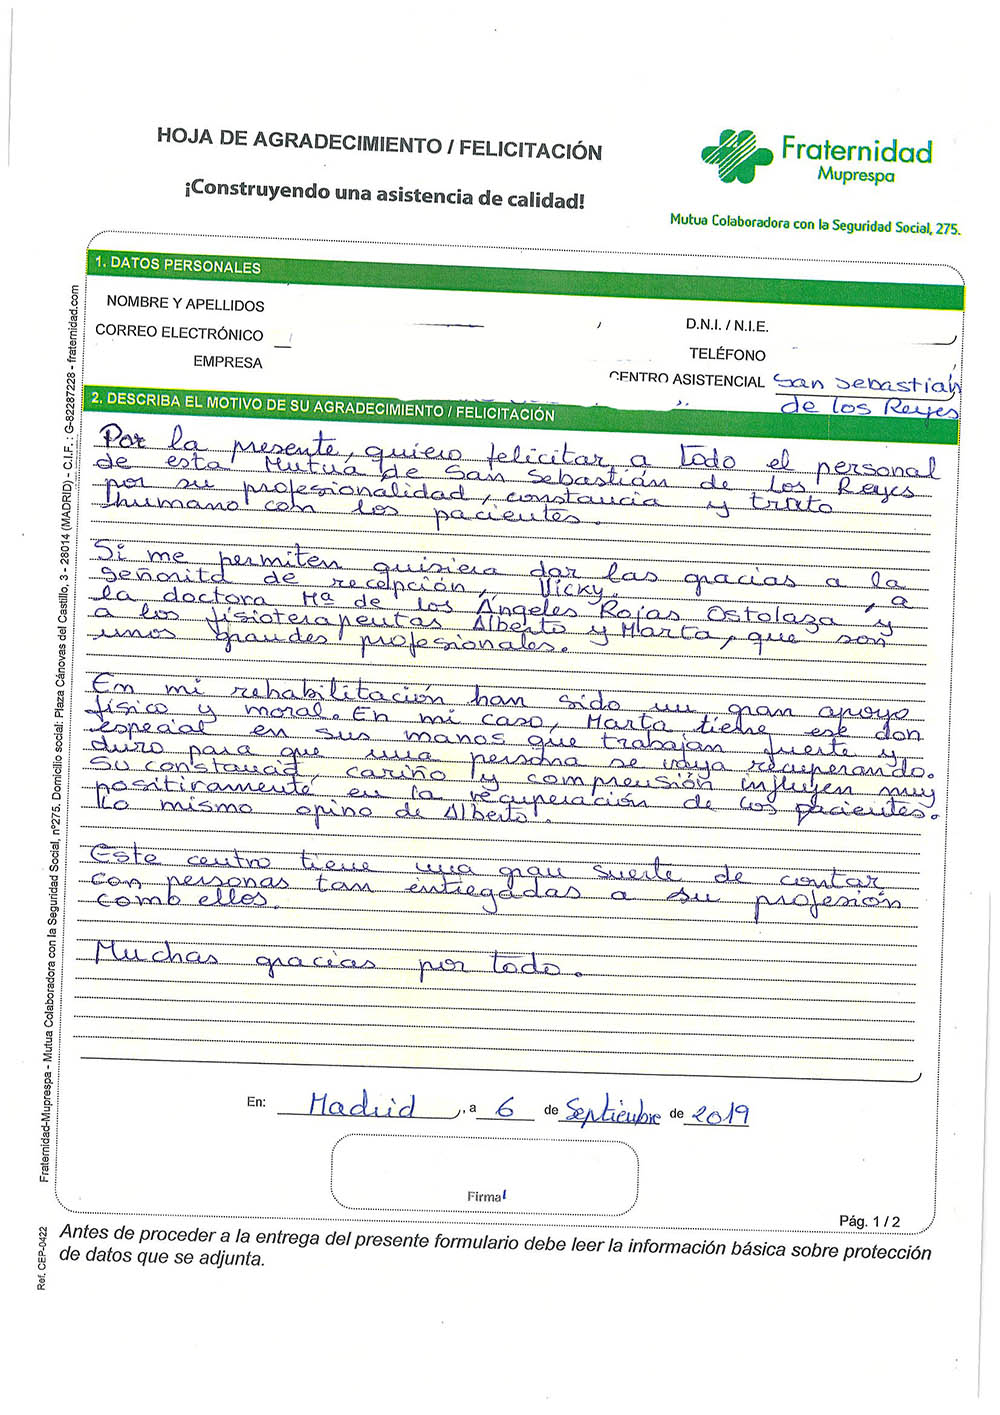 HOJA DE AGRADECIMIENTO / FELICITACIÓN
¡Construyendo una asistencia de calidad!
Fraternidad
Muprespa
Mutua Colaboradora con la Seguridad Social, 275.
1. DATOS PERSONALES
NOMBRE Y APELLIDOS
D.N.I. / N.I.E.
CORREO ELECTRÓNICO
TELÉFONO
EMPRESA
CENTRO ASISTENCIAL San Sebastián
de los Reyes
2. DESCRIBA EL MOTIVO DE SU AGRADECIMIENTO / FELICITACIÓN
Por la presente, quiero felicitar a todo el personal
de esta Mutua de San Sebastián de los Reyes
por su profesionalidad, constancia y trato
humano con los pacientes.
Si me permiten quisiera dar las gracias a la
señorita de recepción, Vicky, a
la doctora Mª de los Ángeles Rojas Ostolaza y
a los fisioterapeutas Alberto y Marta, que son
unos grandes profesionales.
En mi rehabilitación han sido un gran apoyo
físico y moral. En mi caso, Marta tiene ese don
especial en sus manos que trabajan fuerte y
duro para que una persona se vaya recuperando.
Su constancia, cariño y comprensión influyen muy
positivamente en la recuperación de los pacientes.
Lo mismo opino de Alberto.
Este centro tiene una gran suerte de contar
con personas tan entregadas a su profesión
como ellos.
Muchas gracias por todo.
En: Madrid, a 6 de Septiembre de 2019
Firma
Pág. 1 / 2
Antes de proceder a la entrega del presente formulario debe leer la información básica sobre protección
de datos que se adjunta.
Fraternidad-Muprespa - Mutua Colaboradora con la Seguridad Social, nº275. Domicilio social: Plaza Cánovas del Castillo, 3 - 28014 (MADRID) – C.I.F. : G-82287228 - fraternidad.com
Ref. CEP-0422